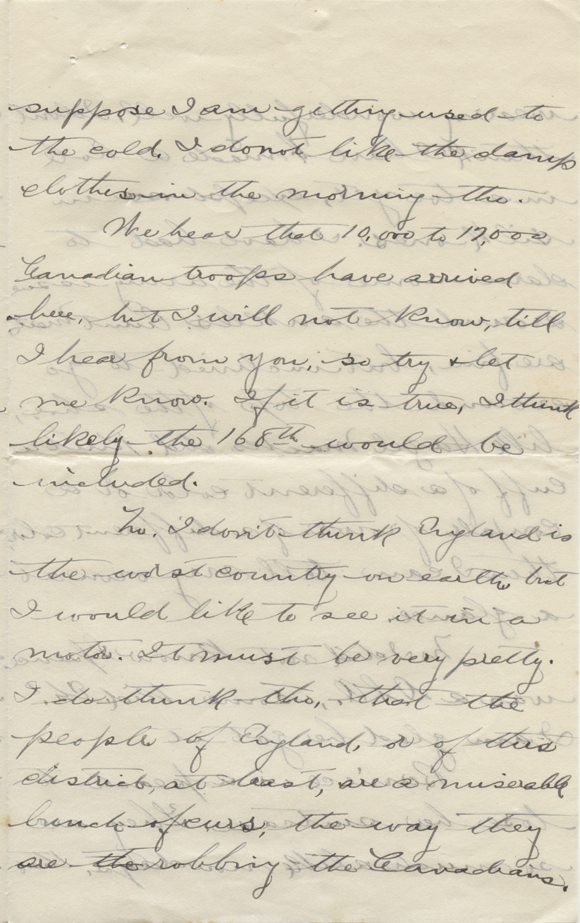 suppose I am getting used to
the cold. I do not like the damp
clothes in the morning tho.
We hear that 10,000 to 12,000
Canadian troops have arrived
here, but I will not know, till
I hear from you, so try & let
me know. If it is true, I think
likely the 168th would be
included.
No, I don't think England is
the worst country on earth, but
I would like to see it in a
motor. It must be very pretty.
I do think tho, that the
people of England, or of this
district, at least, are a miserable
bunch of curs, the way they
are the robbing the Canadians.